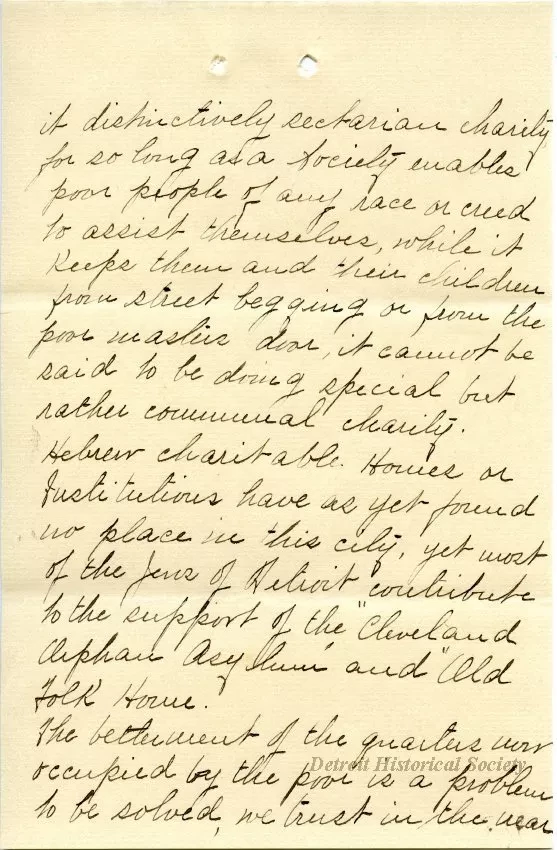 it distinctively sectarian charity,
for so long as a Society enables
poor people of any race or creed
to assist themselves, while it
keeps them and their children
from street begging or from the
poor masters door, it cannot be
said to be doing special but
rather communal charity.
Hebrew charitable Homes or
Institutions have as yet found
no place in this city, yet most
of the Jews of Detroit contribute
to the support of the "Cleveland
Orphan Asylum" and "Old
Folk Home.
The betterment of the quarters now
occupied by the poor is a problem
Detroit Historical Society
to be solved, we trust in the near